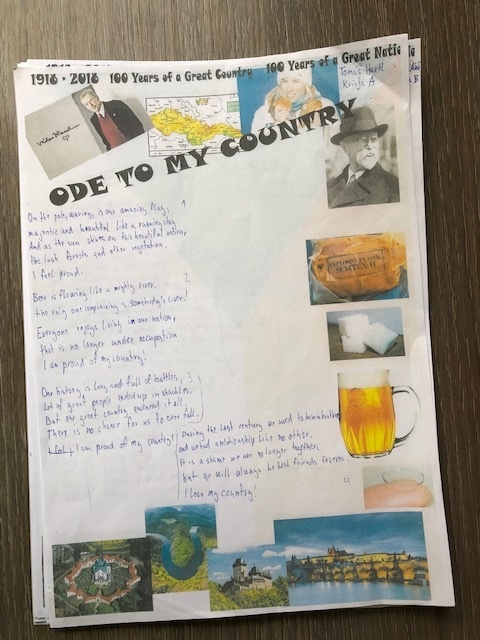 1918 - 2018 100 Years of a Great Country 100 Years of a Great Natio
Tomáš Hartl
Václav Havel
ODE TO MY COUNTRY
EXPLOSIVE PLASTIC
SEMTEX-H
On the pole, waving, is our amazing flag, 1
majestic and beautiful like a running stag.
And as the sun shines on this beautiful nation,
the lush forests and other vegetation.
I feel proud.
Beer is flowing like a mighty river. 2
the only one complaining is somebody's liver.
Everyone enjoys living in our nation,
that is no longer under occupation.
I am proud of my country!
Our history is long and full of battles, 3
Lot of great people ended up in shackles.
But our great country endured it all.
There is no chance for us to ever fall.
I am proud of my country!
During the last century we used to have a brother
and we had relationship like no other.
It is a shame we are no longer together,
but we will always be best friends forever.
I love my country! 4